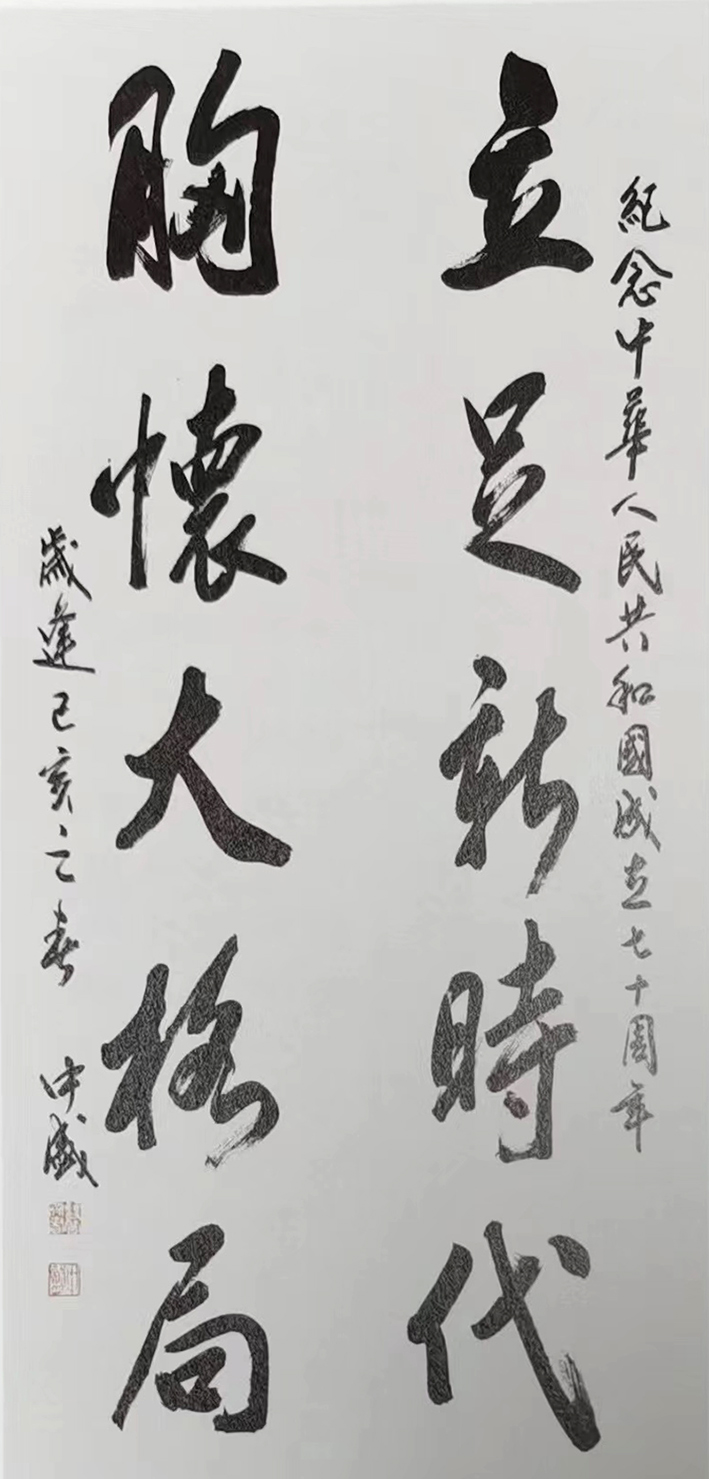 紀念中華人民共和國成立七十周年
立足新時代
胸懷大格局
歲逢己亥之春 中盛